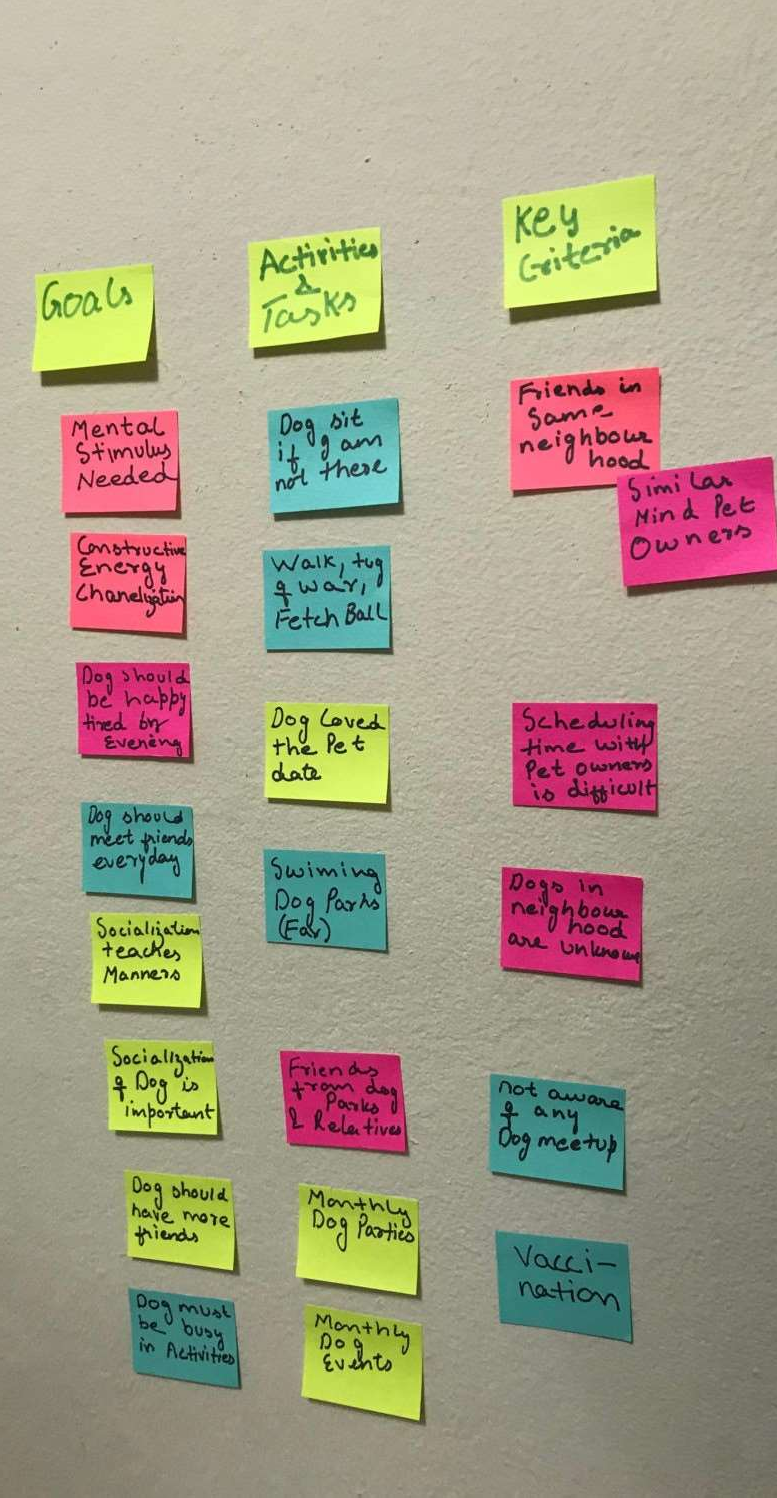 Goals
Mental
Stimulus
Needed
Constructive
Energy
Chanelization
Dog should
be happy
tired by
Evening
Dog should
meet friends
everyday
Socialization
teaches
Manners
Socialization
of Dog is
important
Dog should
have more
friends
Dog must
be busy
in Activities
Activities
&
Tasks
Dog sit
if I am
not there
Walk, tug
of war,
Fetch Ball
Dog Loved
the Pet
date
Swiming
Dog Parks
(Far)
Friends
from dog
Parks
& Relatives
Monthly
Dog Parties
Monthly
Dog
Events
Key
Criteria
Friends in
Same
neighbour
hood
Similar
Mind Pet
Owners
Scheduling
time with
Pet owners
is difficult
Dogs in
neighbour
hood
are unknown
not aware
of any
Dog meetup
Vacci-
nation